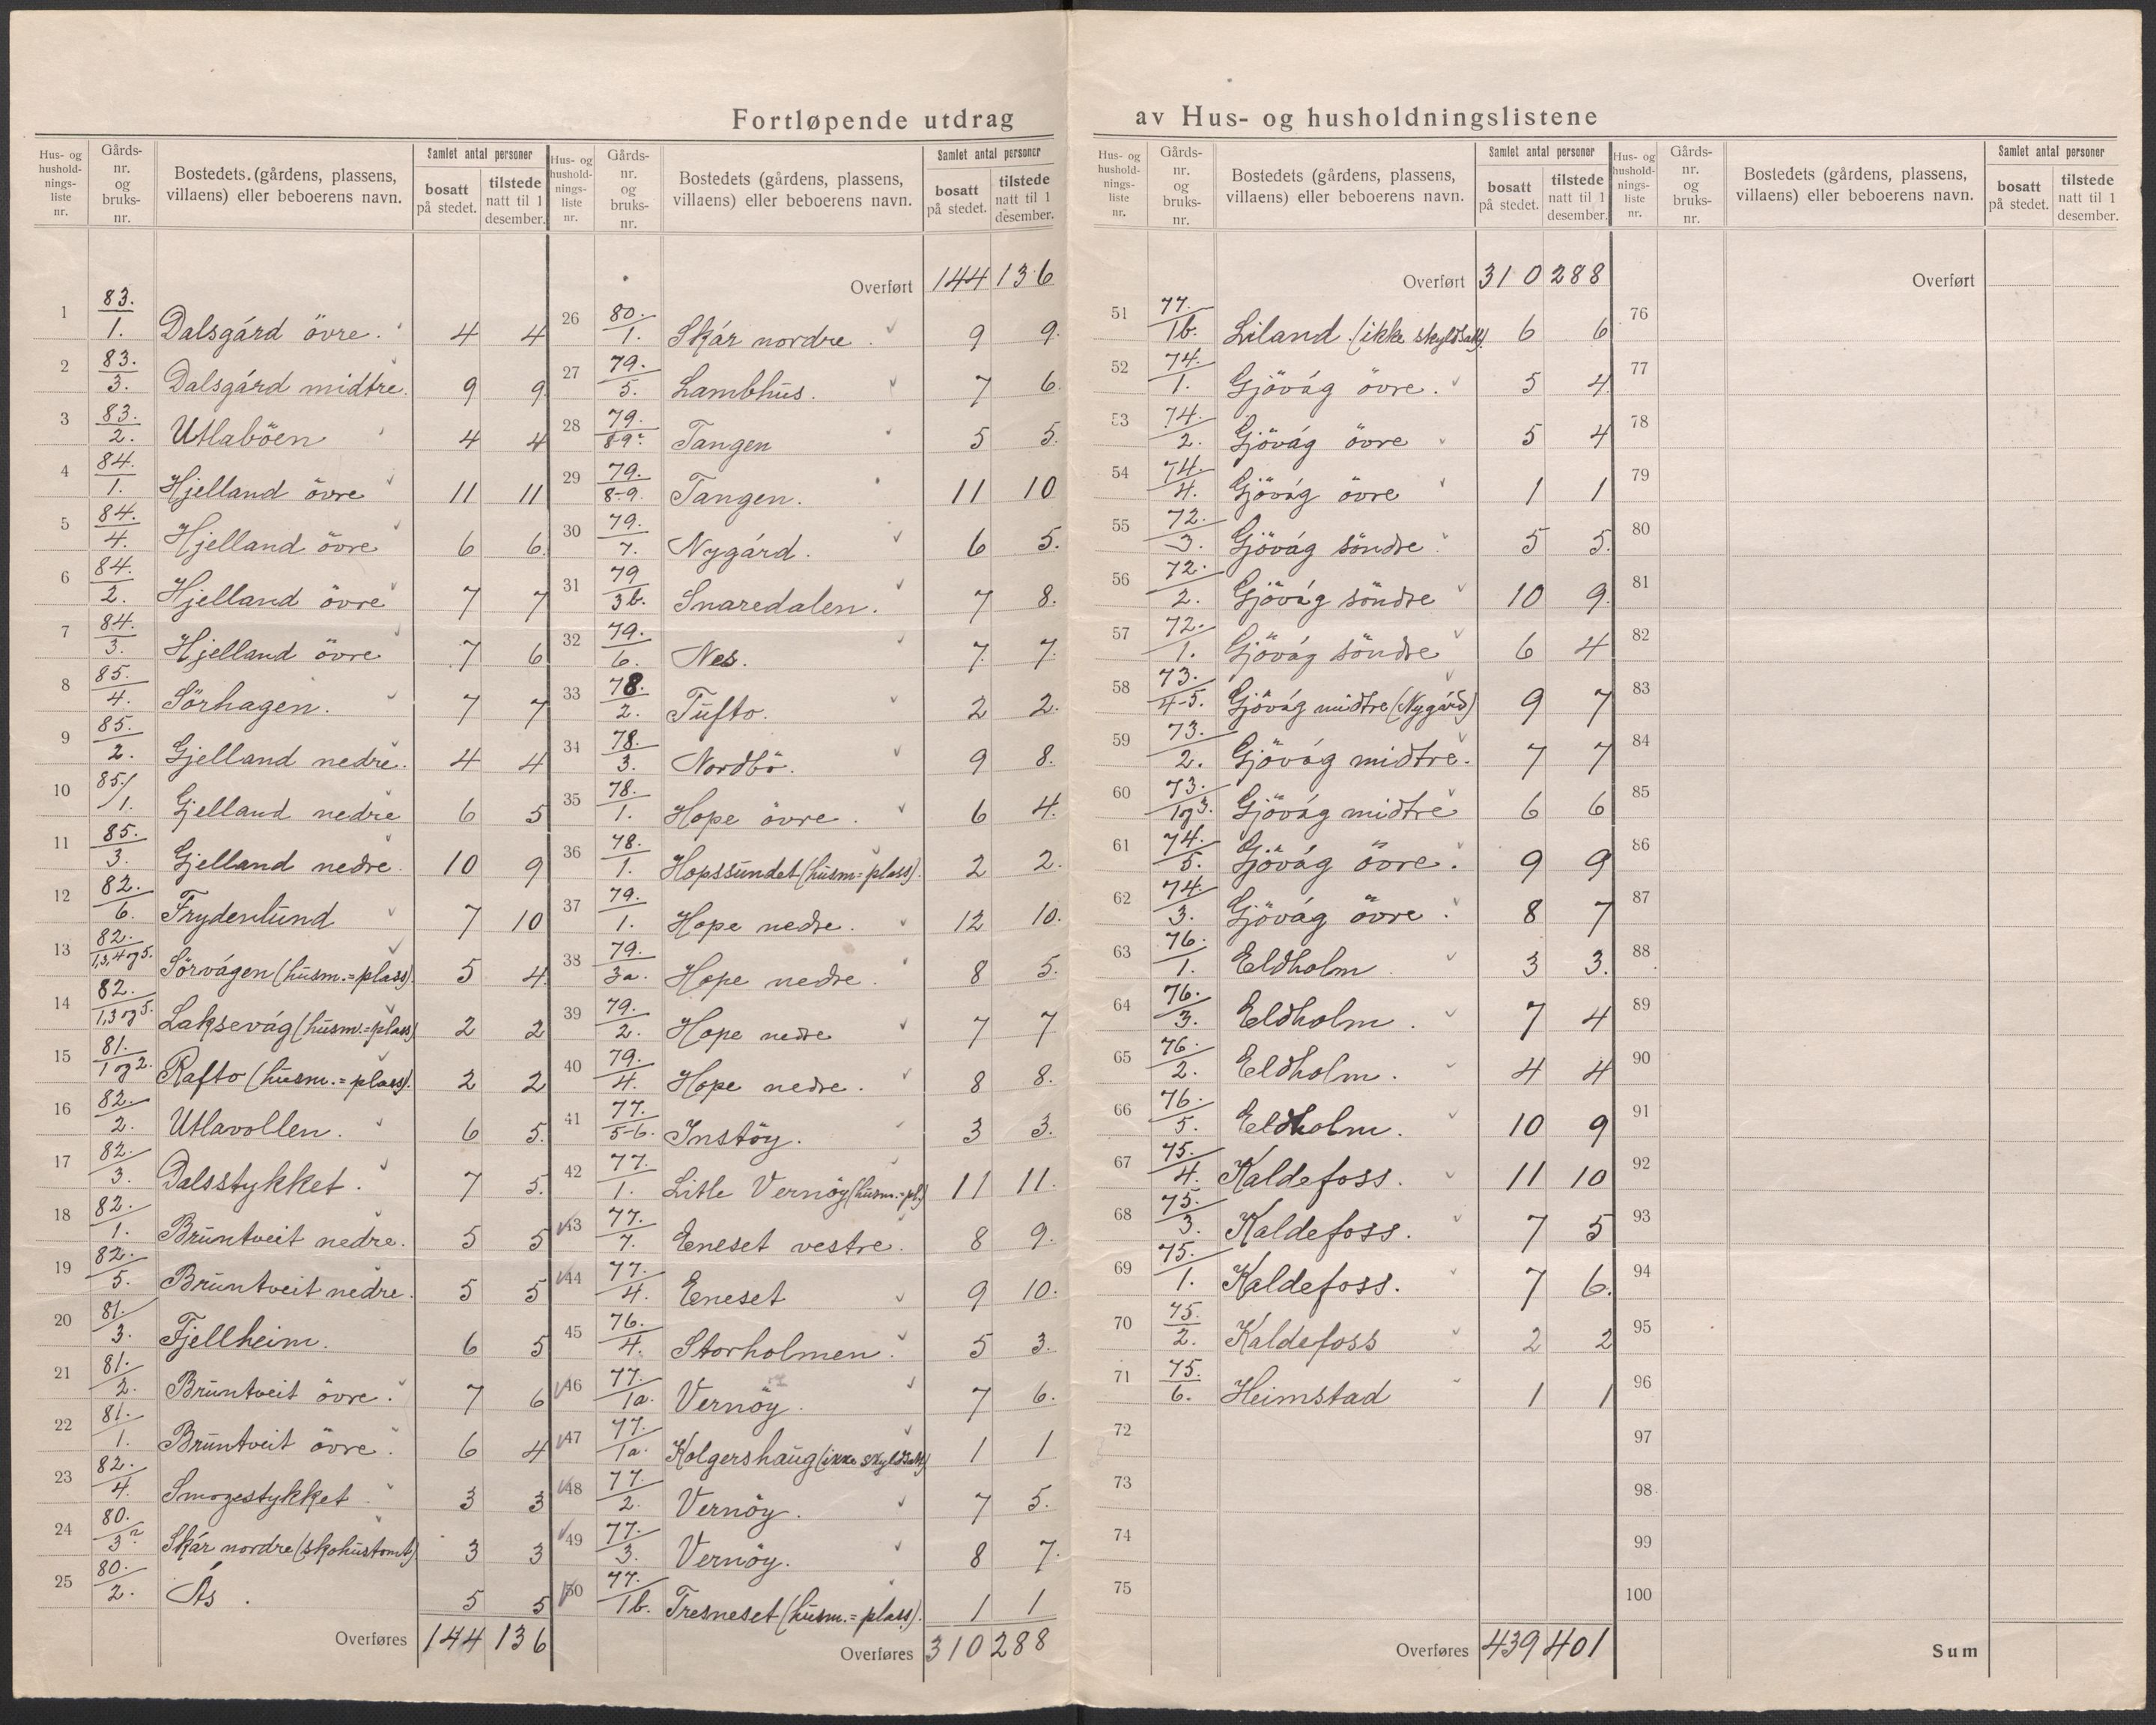 Fortløpende utdrag av Hus- og husholdningslistene
Hus- og husholdnings- liste nr. | Gårds- nr. og bruks- nr. | Bostedets. (gårdens, plassens, villaens) eller beboerens navn. | Samlet antal personer bosatt på stedet. | tilstede natt til 1 desember.
1 83./1. Dalsgárd övre. 4 4
2 83./3. Dalsgárd midtre. 9 9
3 83./2. Utlaböen 4 4
4 84./1. Hjelland övre 11 11
5 84./4. Hjelland övre 6 6.
6 84./2. Hjelland övre 7 7
7 84./3. Hjelland övre 7 6
8 85./4. Sörhagen. 7 7
9 85./2. Gjelland nedre. 4 4
10 85./1. Gjelland nedre 6 5
11 85./3. Gjelland nedre. 10 9
12 82./6. Frydenlund 7 10
13 82./1,3,4 og 5. Sörvágen (husm.=plass). 5 4.
14 82./1,3 og 5. Laksevág (husm.=plass) 2 2
15 81./1 og 2. Rafto (husm.=plass). 2 2
16 82./2. Utlavollen. 6 5.
17 82./3. Dalsstykket. 7 5.
18 82./1. Bruntveit nedre. 5 5
19 82./5. Bruntveit nedre. 5 5
20 81./3. Fjellheim. 6 5
21 81./2. Bruntveit övre. 7 6
22 81./1. Bruntveit övre. 6 4
23 82./4. Smogestykket. 3 3
24 80./3 Skár nordre (skohustomt) 3 3
25 80./2. Ás. 5 5
Overføres 144 136
Hus- og husholdnings- liste nr. | Gårds- nr. og bruks- nr. | Bostedets (gårdens, plassens, villaens) eller beboerens navn. | Samlet antal personer bosatt på stedet. | tilstede natt til 1 desember.
Overført 144 136
26 80./1. Skár nordre. 9 9.
27 79./5. Lambhus. 7 6.
28 79./8-9. Tangen 5 5.
29 79./8-9. Tangen. 11 10
30 79./7. Nygárd. 6 5.
31 79/3b. Snaredalen. 7 8.
32 79./6. Nes. 7. 7.
33 78./2. Tufto. 2 2.
34 78./3. Nordbö. 9 8.
35 78./1. Hope övre. 6 4.
36 78./1. Hopssundet (husm=plass). 2 2.
37 79./1. Hope nedre. 12 10.
38 79./3a. Hope nedre. 8 5.
39 79./2. Hope nedre 7 7
40 79./4. Hope nedre. 8 8.
41 77./5-6. Instöy. 3 3.
42 77./1. Litle Vernöy (husm.=pl.) 11 11.
43 77./7. Eneset vestre. 8 9.
44 77./4. Eneset 9 10.
45 76./4. Storholmen. 5 3.
46 77./1a. Vernöy. 7 6.
47 77./1a. Kolgershaug (ikke skyldsatt) 1 1
48 77./2. Vernöy. 7 5.
49 77./3. Vernöy. 8 7.
50 77./1b. Tresneset (husm.=plass). 1 1
Overføres 310 288
Hus- og husholdnings- liste nr. | Gårds- nr. og bruks- nr. | Bostedets (gårdens, plassens, villaens) eller beboerens navn. | Samlet antal personer bosatt på stedet. | tilstede natt til 1 desember.
Overført 310 288
51 77./1b. Liland. (ikke skyldsatt). 6 6
52 74./1. Gjövág övre. 5 4.
53 74./2. Gjövág övre 5 4
54 74./4. Gjövág övre 1 1
55 72./3. Gjövág söndre 5 5.
56 72./2. Gjövág söndre 10 9.
57 72./1. Gjövág söndre 6 4
58 73./4-5. Gjövág midtre (Nygárd) 9 7
59 73./2. Gjövág midtre. 7 7
60 73./1 og 3. Gjövág midtre 6 6
61 74./5. Gjövág övre. 9 9
62 74./3. Gjövág övre. 8 7
63 76./1. Eldholm. 3 3.
64 76./3. Eldholm. 7 4
65 76./2. Eldholm. 4 4
66 76/5. Eldholm. 10 9
67 75./4. Kaldefoss. 11 10
68 75./3. Kaldefoss. 7 5
69 75./1. Kaldefoss. 7 6.
70 75./2. Kaldefoss 2 2
71 75./6. Heimstad 1 1
72
73
74
75
Overføres 439 401
Hus- og husholdnings- liste nr. | Gårds- nr. og bruks- nr. | Bostedets (gårdens, plassens, villaens) eller beboerens navn. | Samlet antal personer bosatt på stedet. | tilstede natt til 1 desember.
Overført
76
77
78
79
80
81
82
83
84
85
86
87
88
89
90
91
92
93
94
95
96
97
98
99
100
Sum